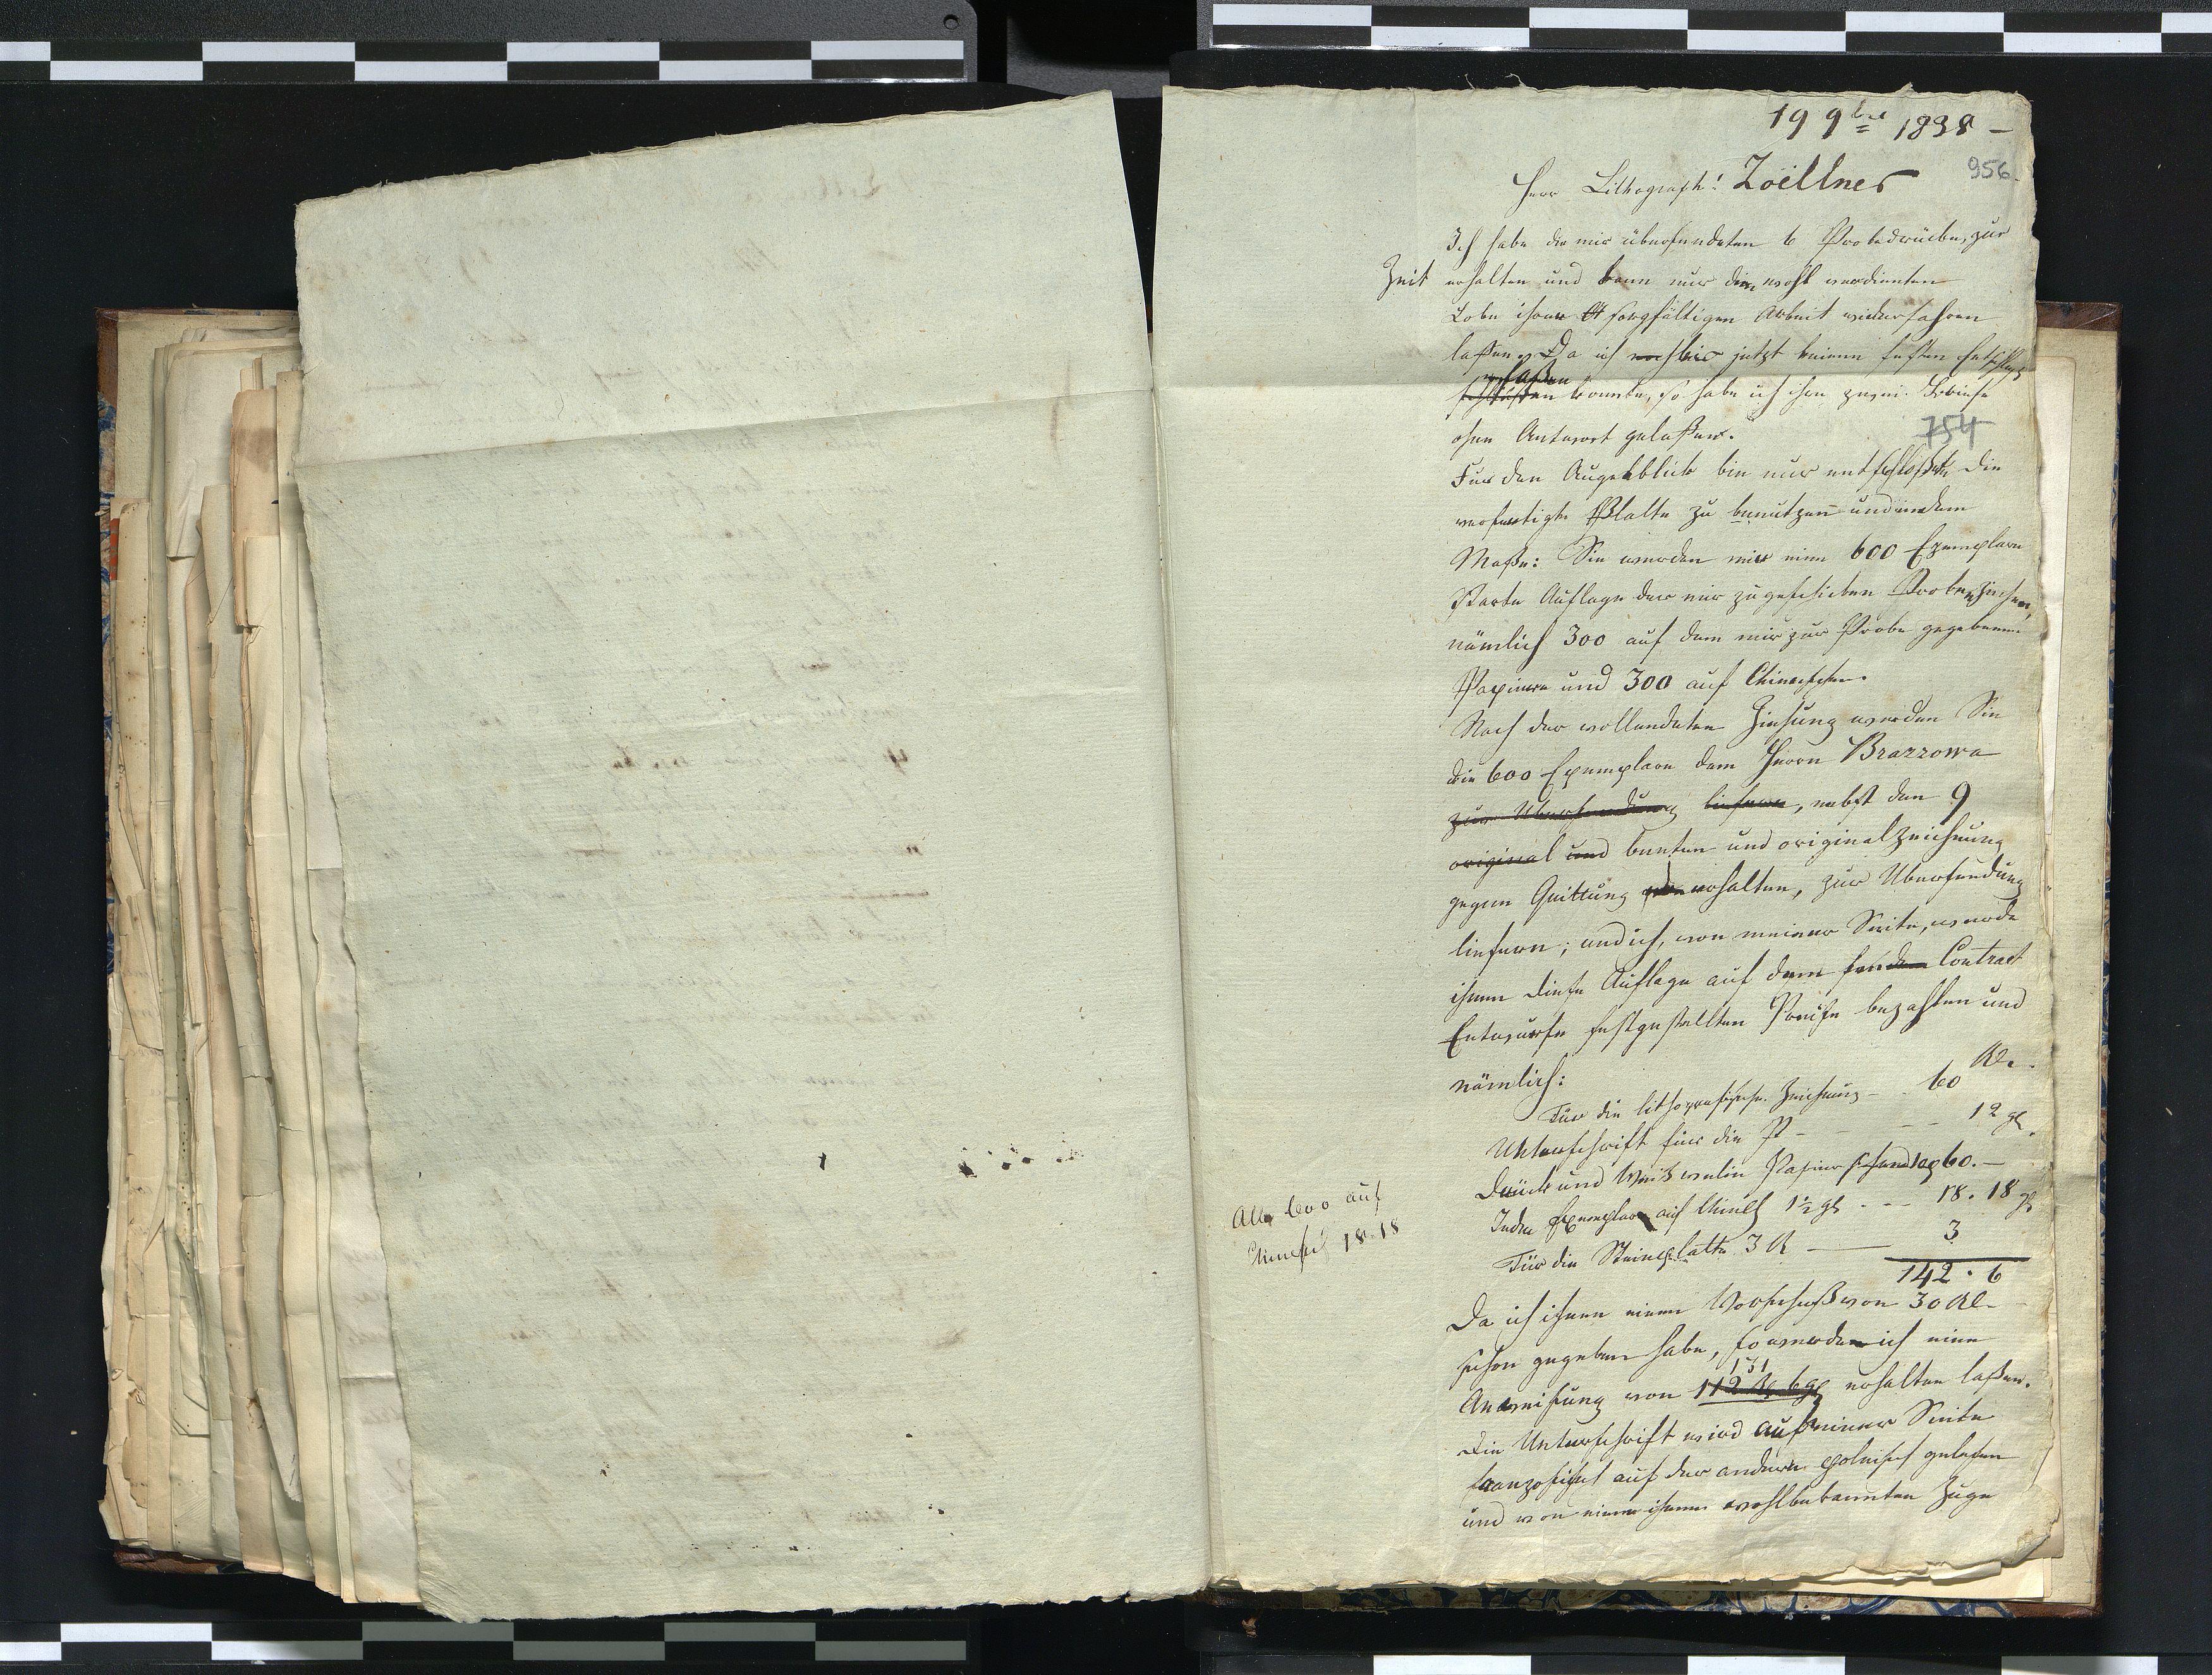 19 9bre 1838 -
956.
Herr Lithograph! Zoëllner
Ich habe die mir übersendeten 6 Probedrücke, zur
Zeit erhalten und kann nur den wohl verdienten
Lobe ihrer sorgfältigen Arbeit wiederfahren
laßen. Da ich noch bis jetzt keinen festen Entschluß
erfaßen
konnte, so habe ich ihre zwei Briefe
ohne Antwort gelaßen.
754
Für den Augenblick bin nur entschloßen die
verfertigte Platte zu benutzen und in dem
Maße: Sie werden mir eine 600 Exemplare
starke Auflage der mir zugeschickten Proben ziehen,
nämlich 300 auf dem mir zur Probe gegebenen
Papiere und 300 auf Chinesischen.
Nach der vollendeten Ziehung werden Sie
die 600 Exemplare dem Herrn Brazzowa
zur Übersendung liefern, nebst den 9
original und bunten und originalzeichnung
gegen Quittung erhalten, zur Übersendung
liefern; und ich, von meiner Seite, werde
ihnen diese Auflage auf dem Contract
Entwurfe festgestellten Preise bezahlen und
nämlich:
Für die lithographische Zeichnung - - 60 Rl.
Unterschrift für die P - - - - 12 gl.
Druck und Weis velin Papier 60. -
Jedes Exemplar auf Chines 1½ gl - - - 18. 18 gl
Alle 600 auf
Chinesisch 18.18
Für die Steinplatte 3 R — 3
142 . 6
Da ich ihnen einen Vorschuß von 30 Rl.
schon gegeben habe, so werden ich eine
131
Anweisung von 112 Rl. 6 gl erhalten laßen.
Die Unterschrift wird auf einer Seite
französisch auf der andern polnisch gelesen
und von einem ihnen wohlbekannten Zuge